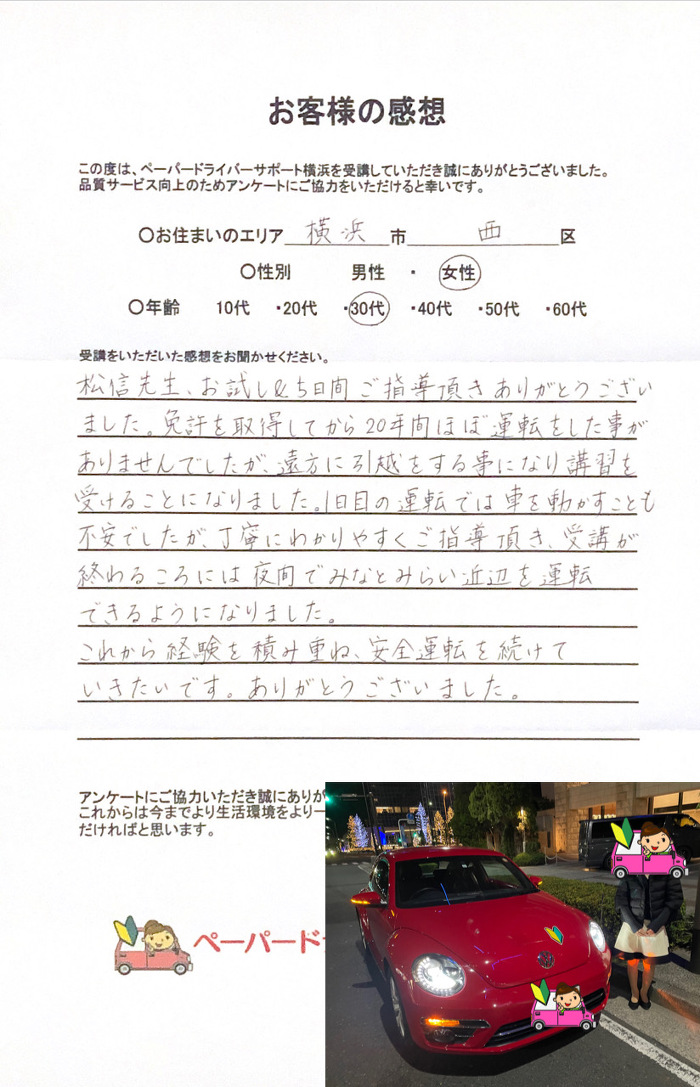 お客様の感想
この度は、ペーパードライバーサポート横浜を受講していただき誠にありがとうございました。
品質サービス向上のためアンケートにご協力をいただけると幸いです。
〇お住まいのエリア 横浜 市 西 区
〇性別 男性 ・ 女性
〇年齢 10代 ・20代 ・30代 ・40代 ・50代 ・60代
受講をいただいた感想をお聞かせください。
松信先生、お試し&5日間ご指導頂きありがとうござい
ました。免許を取得してから20年間ほぼ運転をした事が
ありませんでしたが、遠方に引越をする事になり講習を
受けることになりました。1日目の運転では車を動かすことも
不安でしたが、丁寧にわかりやすくご指導頂き、受講が
終わるころには夜間でみなとみらい近辺を運転
できるようになりました。
これから経験を積み重ね、安全運転を続けて
いきたいです。ありがとうございました。
アンケートにご協力いただき誠にありが
これからは今までより生活環境をより一
だければと思います。
ペーパード